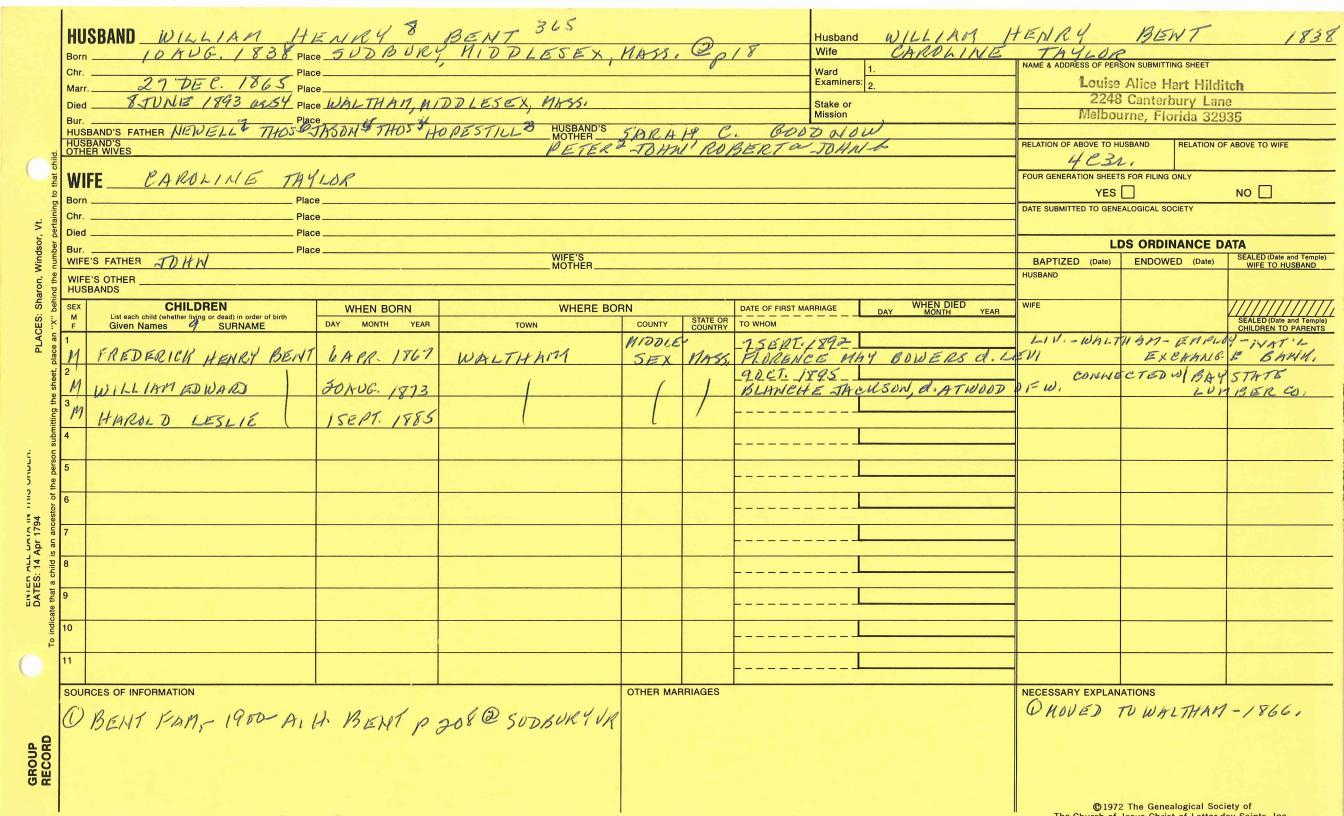 HUSBAND WILLIAM HENRY 8 BENT 365
Born 10 AUG. 1838 Place SUDBURY, MIDDLESEX, MASS. ② p18
Chr. Place
Marr. 27 DEC. 1865 Place
Died 8 JUNE 1893 Place WALTHAM, MIDDLESEX, MASS.
Bur. Place
HUSBAND'S FATHER NEWELL7 THOS6 JASON5 THOS4 HOPESTILL3 HUSBAND'S MOTHER SARAH C. GOODNOW
HUSBAND'S OTHER WIVES PETER2 JOHN1 ROBERT a JOHN b
Husband WILLIAM HENRY BENT 1838
Wife CAROLINE TAYLOR
Ward Examiners: 1.
2.
Stake or Mission
NAME & ADDRESS OF PERSON SUBMITTING SHEET
Louise Alice Hart Hilditch
2248 Canterbury Lane
Melbourne, Florida 32935
RELATION OF ABOVE TO HUSBAND RELATION OF ABOVE TO WIFE
4C3r.
FOUR GENERATION SHEETS FOR FILING ONLY
YES NO
DATE SUBMITTED TO GENEALOGICAL SOCIETY
WIFE CAROLINE TAYLOR
Born Place
Chr. Place
Died Place
Bur. Place
WIFE'S FATHER JOHN WIFE'S MOTHER
WIFE'S OTHER HUSBANDS
LDS ORDINANCE DATA
BAPTIZED (Date) ENDOWED (Date) SEALED (Date and Temple) WIFE TO HUSBAND
HUSBAND
WIFE
SEALED (Date and Temple) CHILDREN TO PARENTS
SEX M F
CHILDREN
List each child (whether living or dead) in order of birth
Given Names 9 SURNAME
WHEN BORN
DAY MONTH YEAR
WHERE BORN
TOWN COUNTY STATE OR COUNTRY
DATE OF FIRST MARRIAGE
TO WHOM
WHEN DIED
DAY MONTH YEAR
1 M FREDERICK HENRY BENT 6 APR. 1867 WALTHAM MIDDLESEX MASS. 7 SEPT. 1892
FLORENCE MAY BOWERS d. LEVI
LIV. - WALTHAM - EMPLOY - NAT'L
EXCHANGE BANK.
2 M WILLIAM EDWARD 20 AUG. 1873 9 OCT. 1895
BLANCHE JACKSON, d. ATWOOD OF W.
CONNECTED W/ BAY STATE
LUMBER CO.
3 M HAROLD LESLIE 1 SEPT. 1885
4
5
6
7
8
9
10
11
SOURCES OF INFORMATION
① BENT FAM, - 1900 A.H. BENT p 208 ② SUDBURY VR
OTHER MARRIAGES
NECESSARY EXPLANATIONS
① MOVED TO WALTHAM - 1866.
©1972 The Genealogical Society of
The Church of Jesus Christ of Latter-day Saints, Inc.
PLACES: Sharon, Windsor, Vt.
ENTER ALL DATA IN THIS ORDER:
DATES: 14 Apr 1794
To indicate that a child is an ancestor of the person submitting the sheet, place an "X" behind the number pertaining to that child.
GROUP RECORD